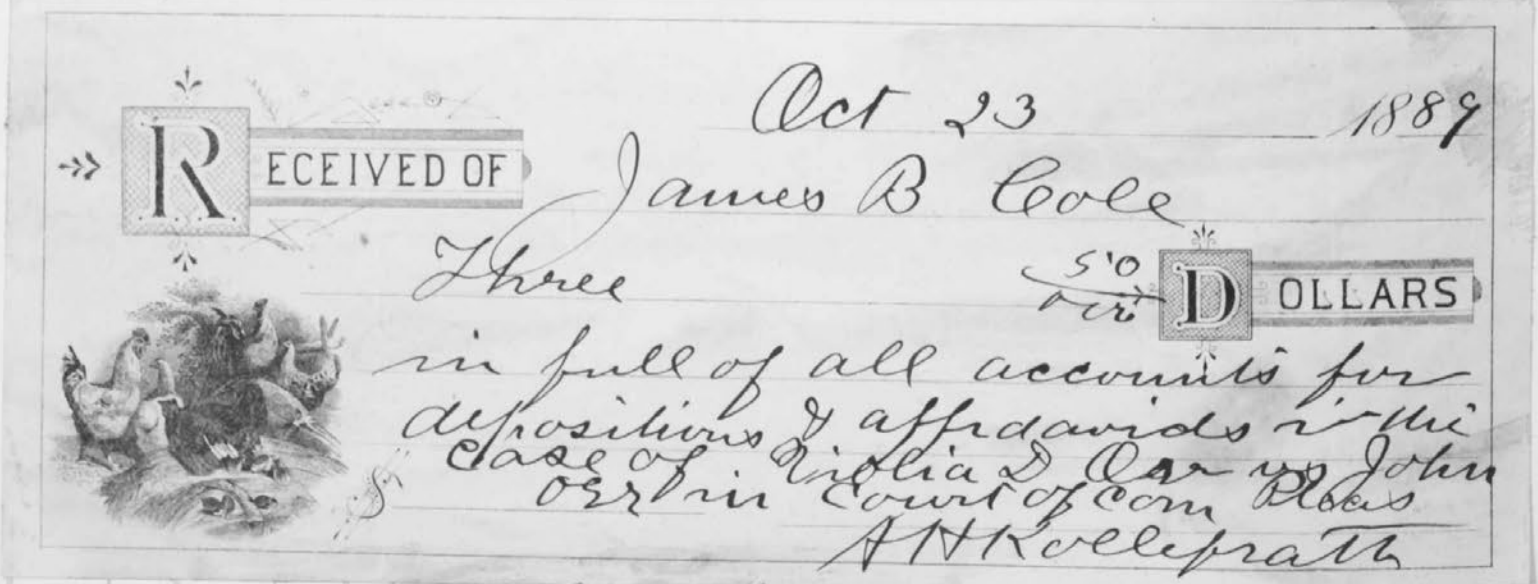 Oct 23 1889
RECEIVED OF James B Cole
Three 50/00 DOLLARS
in full of all accounts for
depositions & affidavids in the
case of D Orr vs John
Orr in Court of com Pleas
$ A H